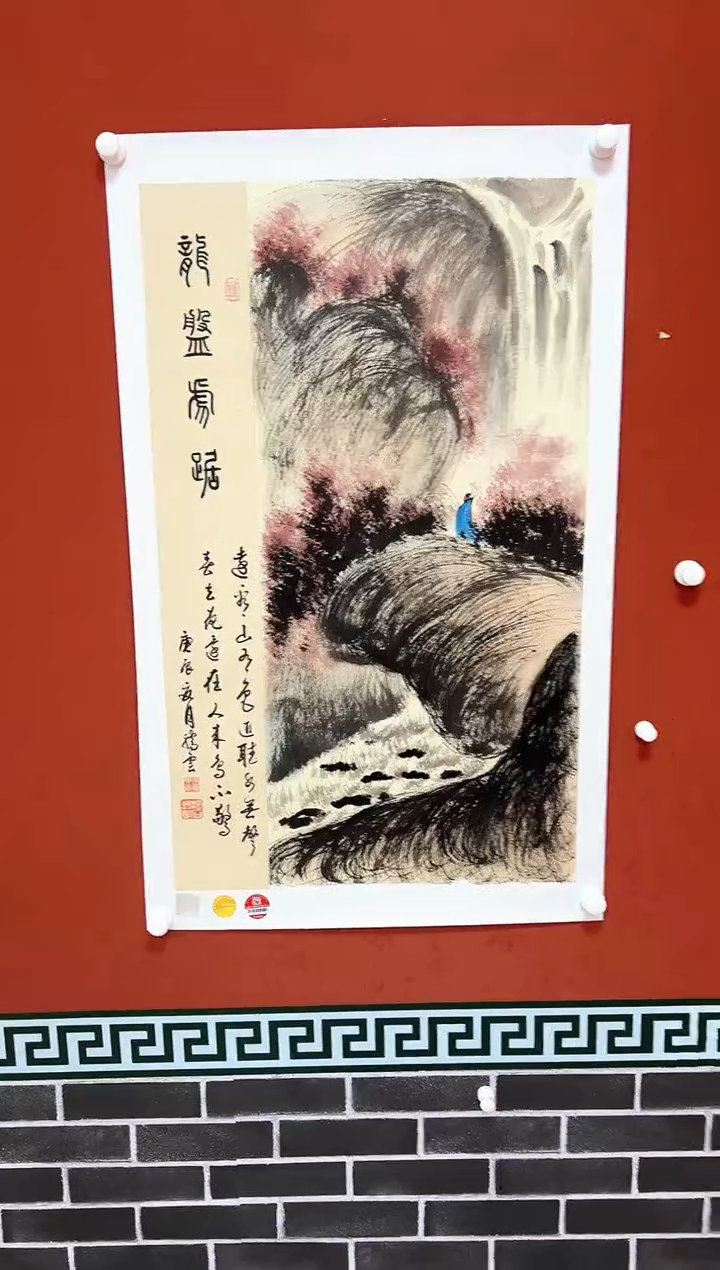 龍盤虎踞
遠看山有色近聽水無聲
春去花還在人來鳥不驚
庚辰夏月雲